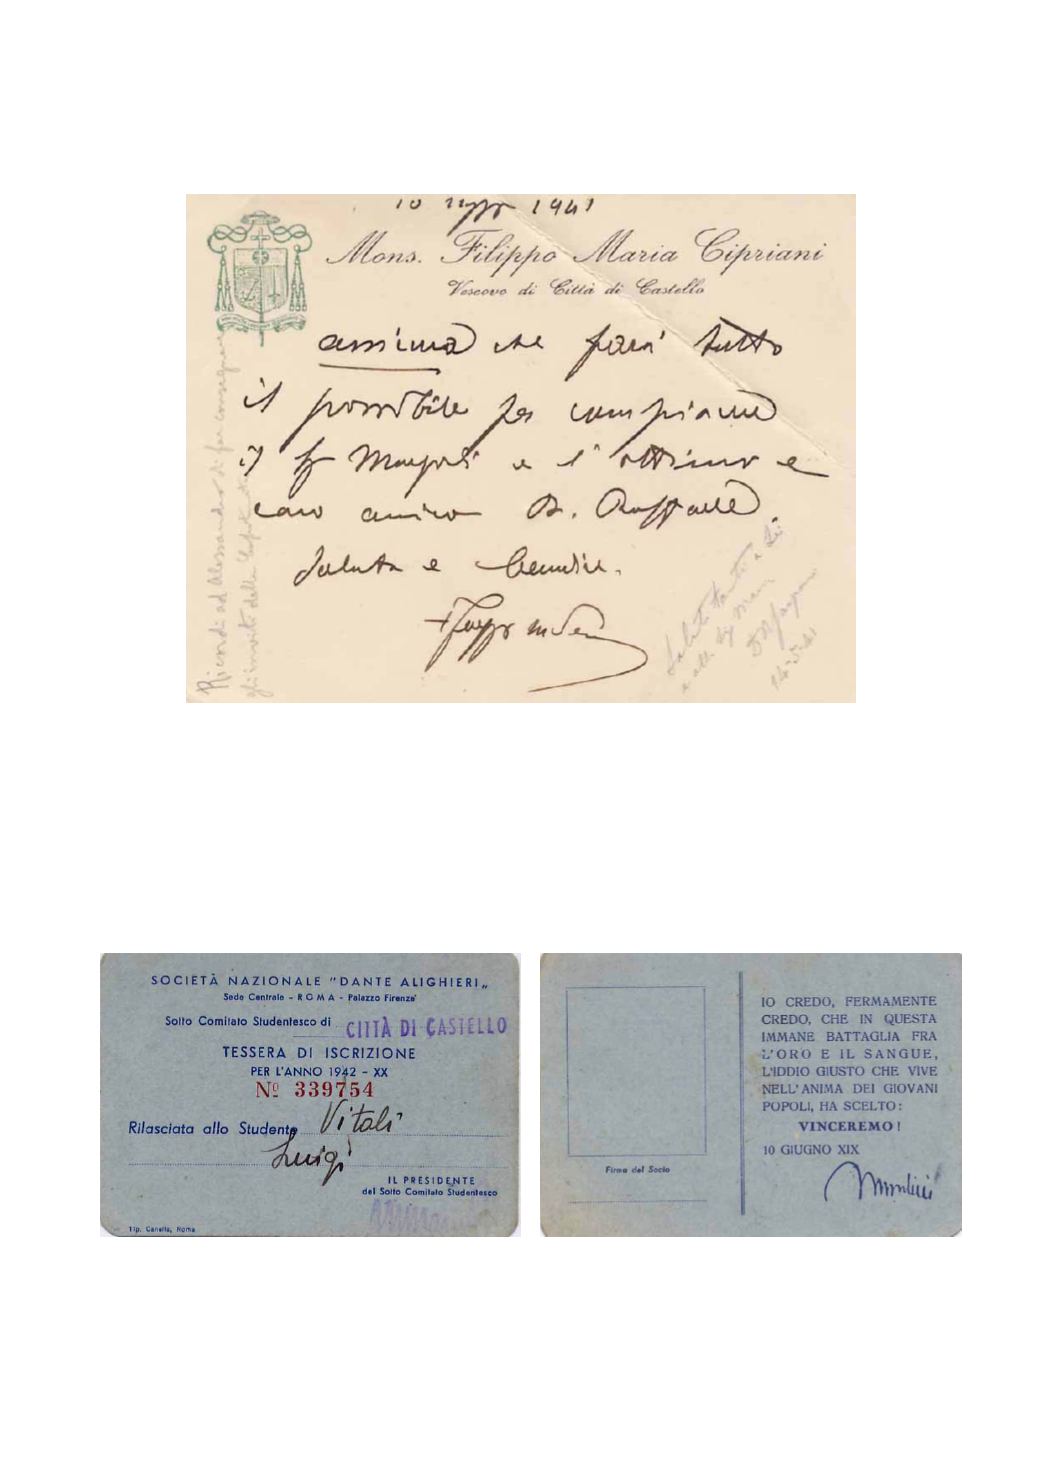 10 1941
Mons. Filippo Maria Cipriani
Vescovo di Città di Castello
assicura che farà tutto
il possibile per compiacere
il e l'ottimo e
caro amico D. Raffaele.
Saluta e benedice.
Ricordi ad Alessandro di far consegnare
gli inviti delle
Saluti tanto a Lei
e all.
SOCIETÀ NAZIONALE "DANTE ALIGHIERI„
Sede Centrale - ROMA - Palazzo Firenze
Sotto Comitato Studentesco di CITTÀ DI CASTELLO
TESSERA DI ISCRIZIONE
PER L'ANNO 1942 - XX
Nº 339754
Rilasciata allo Studente Vitali
Luigi
IL PRESIDENTE
del Sotto Comitato Studentesco
Tip. Canella, Roma
Firma del Socio
IO CREDO, FERMAMENTE
CREDO, CHE IN QUESTA
IMMANE BATTAGLIA FRA
L'ORO E IL SANGUE,
L'IDDIO GIUSTO CHE VIVE
NELL'ANIMA DEI GIOVANI
POPOLI, HA SCELTO:
VINCEREMO!
10 GIUGNO XIX